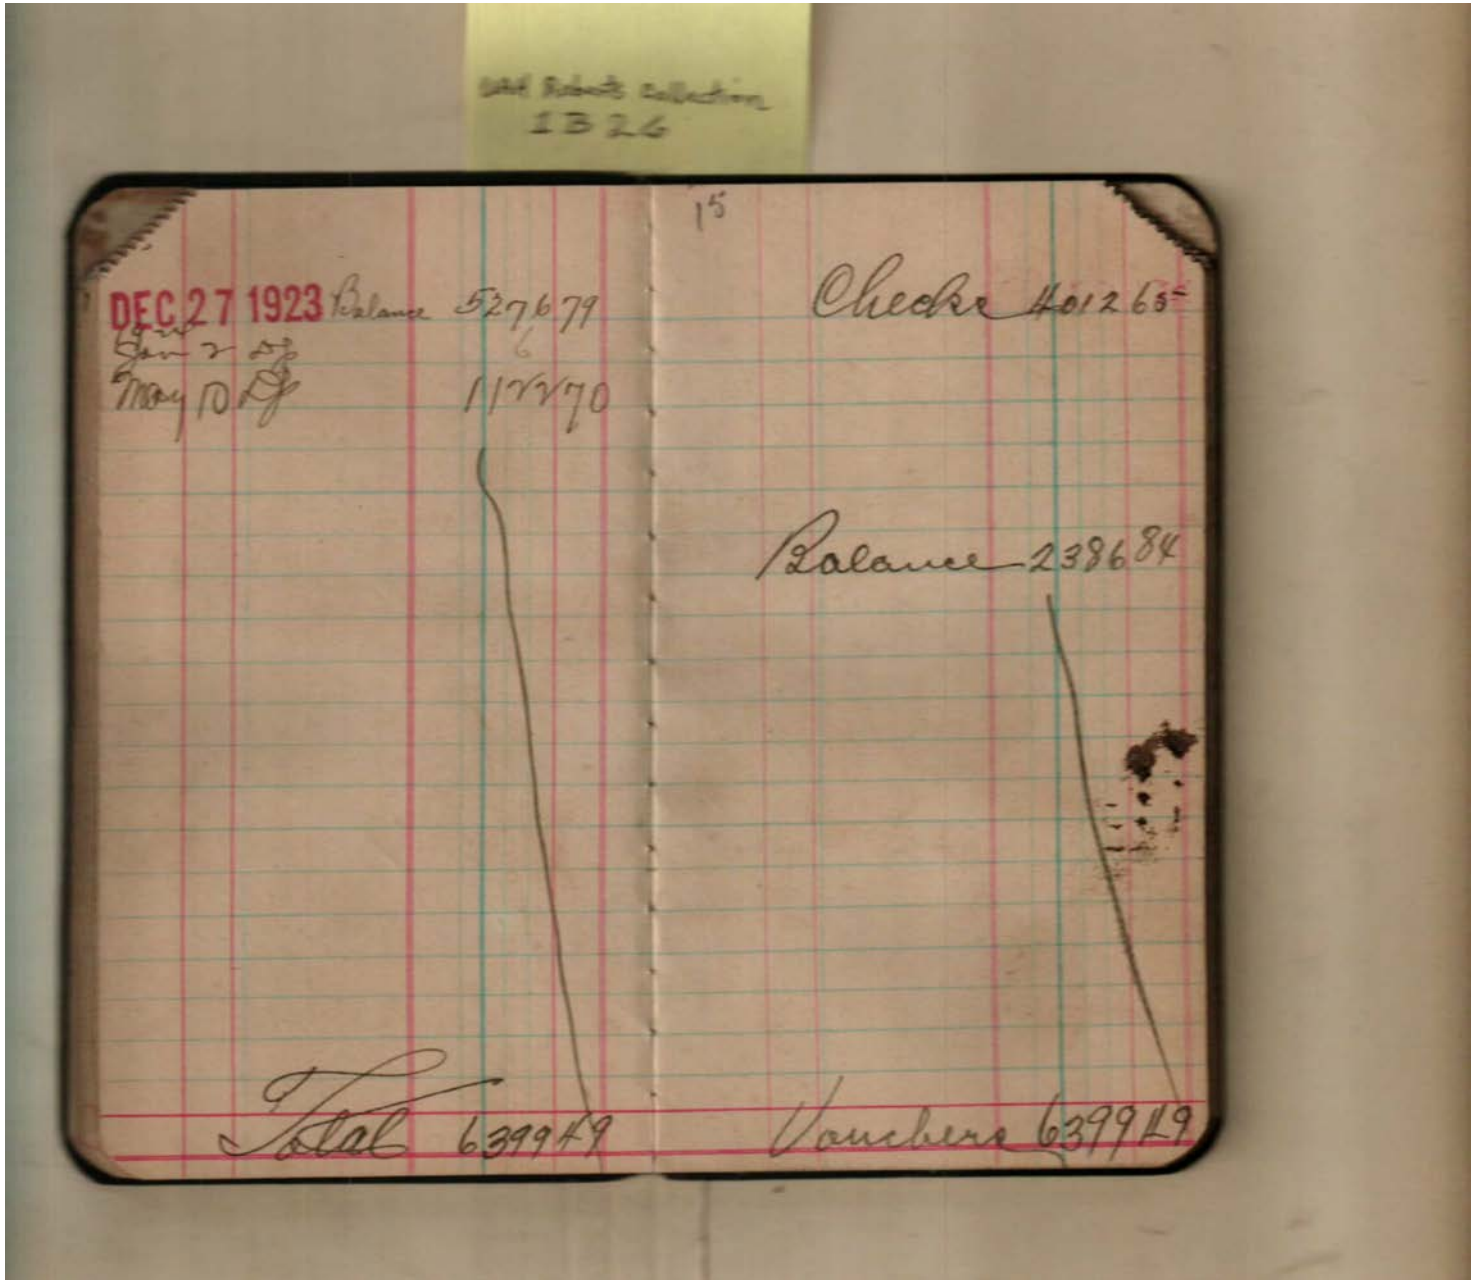 UAH Roberts Collection
1B26
DEC 27 1923 Balance 527679
Jan 2
May 10 112270
Total 639949
15
Checks 401265
Balance 238684
Vouchers 639949